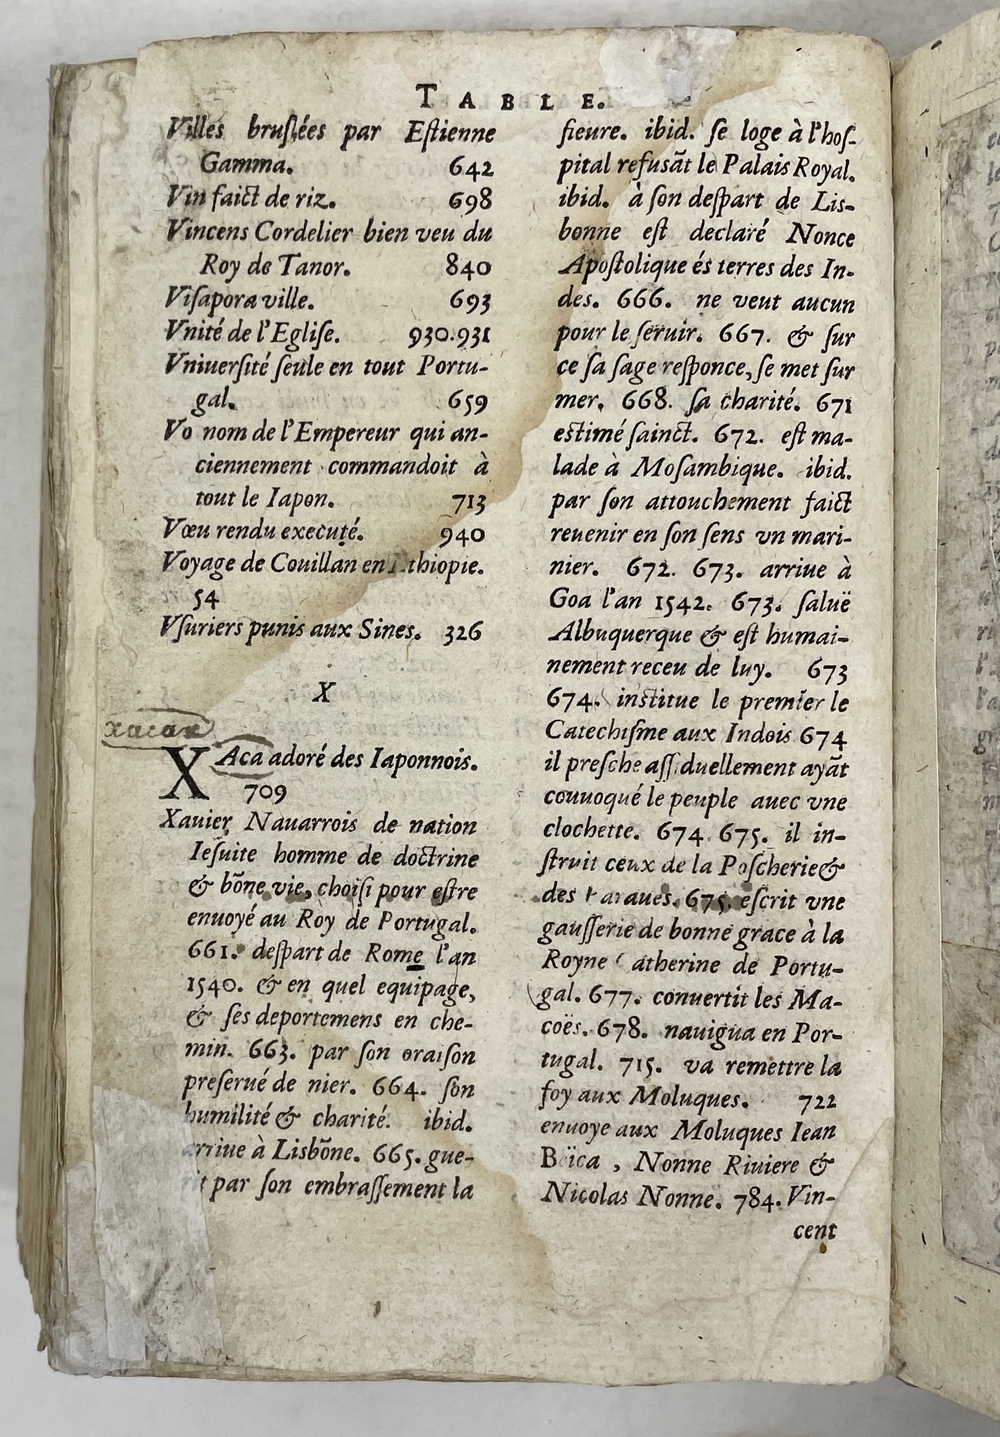 TABLE.
Villes bruslées par Estienne
Gamma. 642
Vin faict de riz. 698
Vincens Cordelier bien veu du
Roy de Tanor. 840
Viſapora ville. 693
Vnité de l'Egliſe. 930.931
Vniuerſité ſeule en tout Portu-
gal. 659
Vo nom de l'Empereur qui an-
ciennement commandoit à
tout le Iapon. 713
Vœu rendu executé. 940
Voyage de Couillan en thiopie.
54
Vſuriers punis aux Sines. 326
X
xacax
XAca adoré des Iaponnois.
709
Xauier Nauarrois de nation
Ieſuite homme de doctrine
& bõne vie, choiſi pour eſtre
enuoyé au Roy de Portugal.
661. deſpart de Rome l'an
1540. & en quel equipage,
& ſes deportemens en che-
min. 663. par ſon oraiſon
preſerué de nier. 664. ſon
humilité & charité. ibid.
arriue à Lisbõne. 665. gue-
rit par ſon embraſſement la
fieure. ibid. ſe loge à l'hoſ-
pital refuſãt le Palais Royal.
ibid. à ſon deſpart de Lis-
bonne eſt declaré Nonce
Apoſtolique és terres des In-
des. 666. ne veut aucun
pour le ſeruir. 667. & ſur
ce ſa ſage reſponce, ſe met ſur
mer. 668. ſa charité. 671
eſtimé ſainct. 672. eſt ma-
lade à Moſambique. ibid.
par ſon attouchement faict
reuenir en ſon ſens vn mari-
nier. 672. 673. arriue à
Goa l'an 1542. 673. ſaluë
Albuquerque & eſt humai-
nement receu de luy. 673
674. inſtitue le premier le
Catechiſme aux Indois 674
il preſche aſſiduellement ayãt
conuoqué le peuple auec vne
clochette. 674 675. il in-
ſtruit ceux de la Poſcherie &
des Paraues. 675. eſcrit vne
gauſſerie de bonne grace à la
Royne Catherine de Portu-
gal. 677. conuertit les Ma-
coës. 678. nauigua en Por-
tugal. 715. va remettre la
foy aux Moluques. 722
enuoye aux Moluques Iean
, Nonne Riuiere &
Nicolas Nonne. 784. Vin-
cent